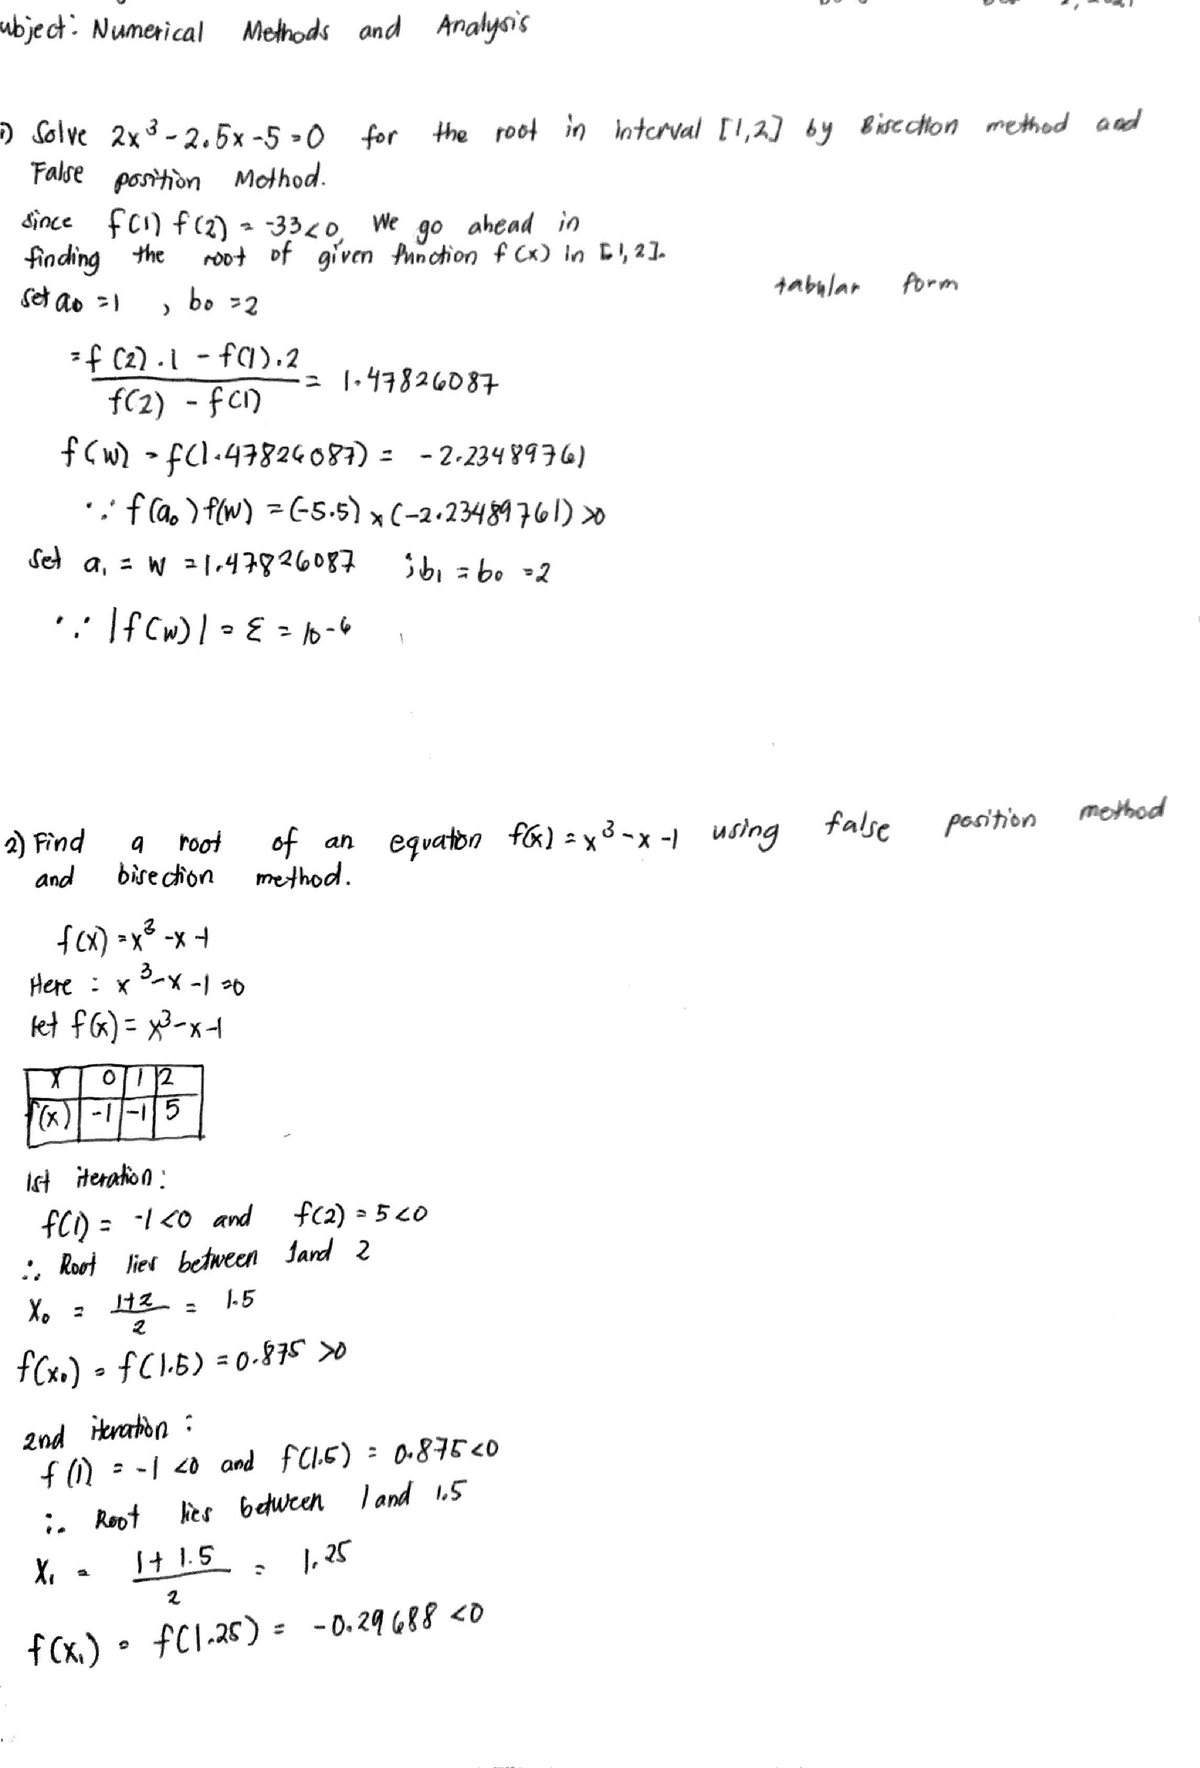 ubject: Numerical Methods and Analysis
1) Solve 2x³ - 2.5x - 5 = 0 for the root in interval [1,2] by Bisection method and
False position Method.
since f(1) f(2) = -33<0, We go ahead in
finding the root of given function f(x) in [1,2].
tabular form
set a₀ = 1 , b₀ = 2
= f(2).1 - f(1).2 / f(2) - f(1) = 1.47826087
f(w) = f(1.47826087) = -2.23489761
∵ f(a₀) f(w) = (-5.5) x (-2.23489761) >0
Set a₁ = w = 1.47826087 ; b₁ = b₀ = 2
∵ |f(w)| = ε = 10-6
2) Find a root of an equation f(x) = x³ - x - 1 using false position method
and bisection method.
f(x) = x³ - x - 1
Here : x³ - x - 1 = 0
let f(x) = x³ - x - 1
x 0 1 2
f(x) -1 -1 5
1st iteration :
f(1) = -1 <0 and f(2) = 5 <0
∴ Root lies between 1 and 2
X₀ = 1+2 / 2 = 1.5
f(x₀) = f(1.5) = 0.875 >0
2nd iteration :
f(1) = -1 <0 and f(1.5) = 0.875 <0
∴ Root lies between 1 and 1.5
X₁ = 1 + 1.5 / 2 = 1.25
f(x₁) = f(1.25) = -0.29688 <0